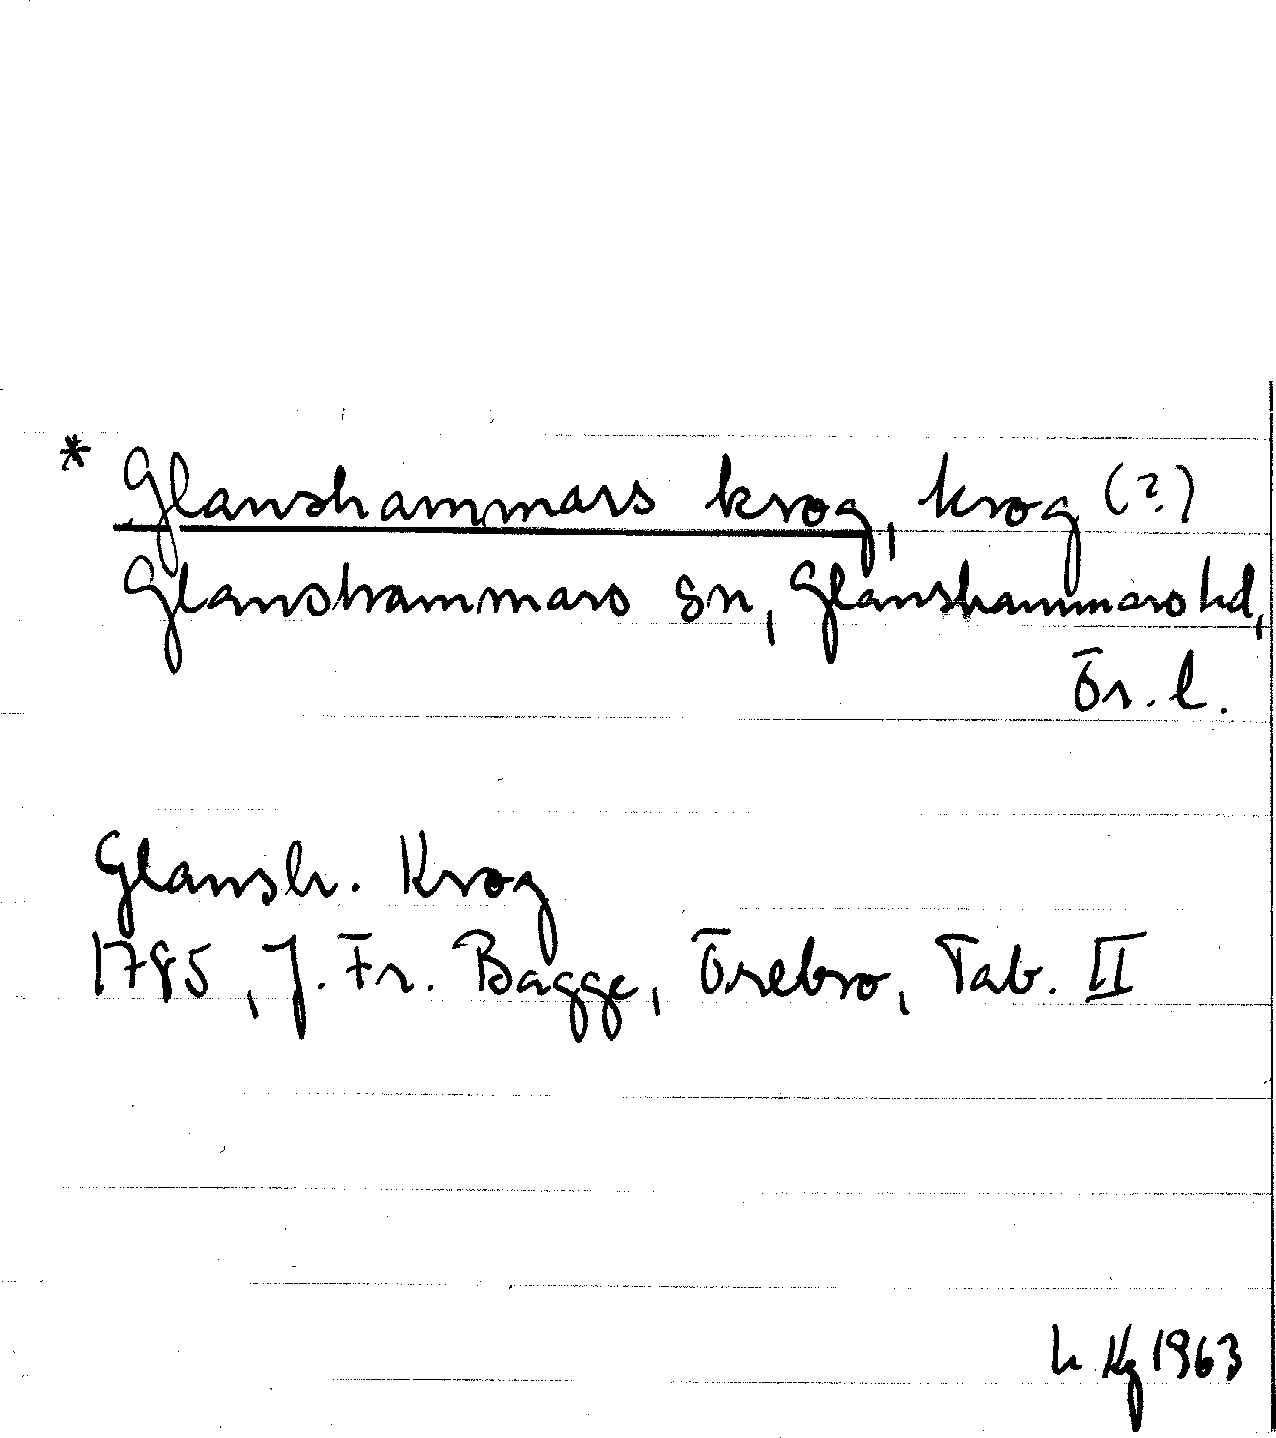 * Glanshammars krog, krog (?)
Glanshammars sn, Glanshammars hd,
Ör. l.
Glansh. Krog
1785, J. Fr. Bagge, Örebro, Tab. II
h Kg 1963